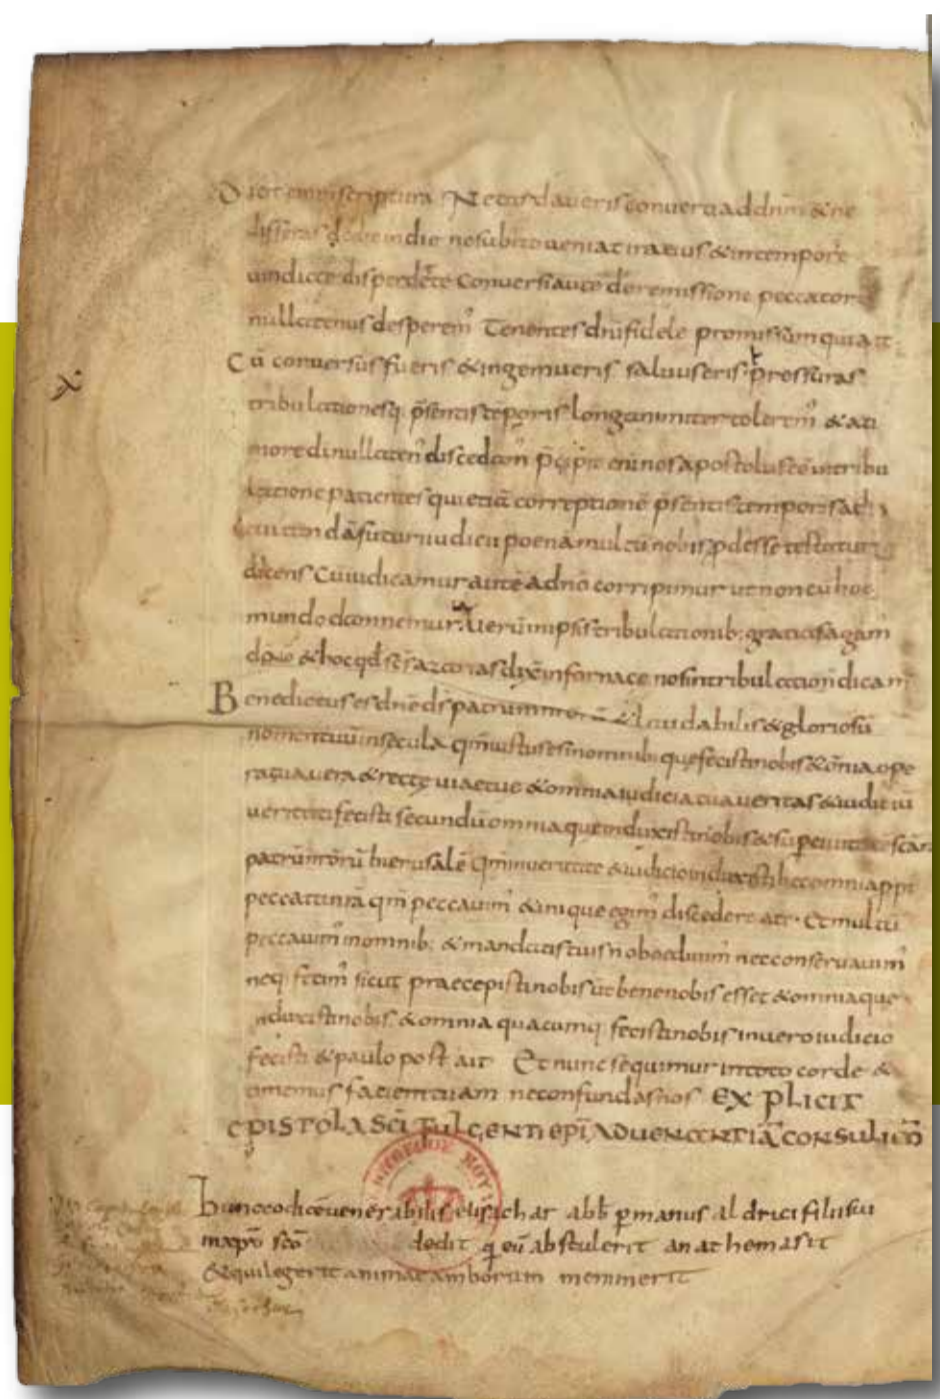 Dicit enim scriptura Ne tardaveris converti ad dnm & ne
differas de die in die ne subito veniat ira eius & in tempore
vindicte disperdet te Conversi aute de remissione peccator
nullatenus desperem Tenentes dni fidele promissum qui ait
Cu conversus fueris & ingemueris salvus eris pressuras
tribulationesq psentis teporis longanimiter tolerem & a ti
more di nullaten discedam pcipit eni nos apostolus ee in tribu
latione patientes qui etia correptione psentis temporis ad
futuri iudicii poena multu nobis pdesse testatur
dicens Cu iudicamur aute a dno corripimur ut non cu hoc
mundo damnemur Veru in ipsis tribulationib gratias agam
dno & hoc qd ses azarias dix in fornace nos in tribulation dicam
Benedictus es dne ds patrum nroru & laudabilis & gloriosu
nomen tuu in secula qm iustus es in omnib que fecisti nobis & omia ope
ra tua vera & recte viae tue & omnia iudicia tua veritas & iudiciu
veritatis fecisti secundu omnia que induxisti nobis & super civitate scam
patrum nroru hierusale Qm in veritate & iudicio induxisti hec omnia ppt
peccata nra qm peccavim & inique egim discedere a te Et multu
peccavim in omnib & mandatis tuis n obedivim nec conservavim
neq fecim sicut praecepisti nobis ut bene nobis esset & omnia que
induxisti nobis & omnia quacumq fecisti nobis in vero iudicio
fecisti & paulo post ait Et nunc sequimur in toto corde &
timemus faciem tuam ne confundas nos EXPLICIT
EPISTOLA SCI FULGENTII EPI AD VENANTIA CONSULIO
Hunc codice venerabilis elisachar abb p manus aldrici filii sui
mapro sco dedit q eu abstulerit anathema sit
& qui legerit animae amborum meminerit